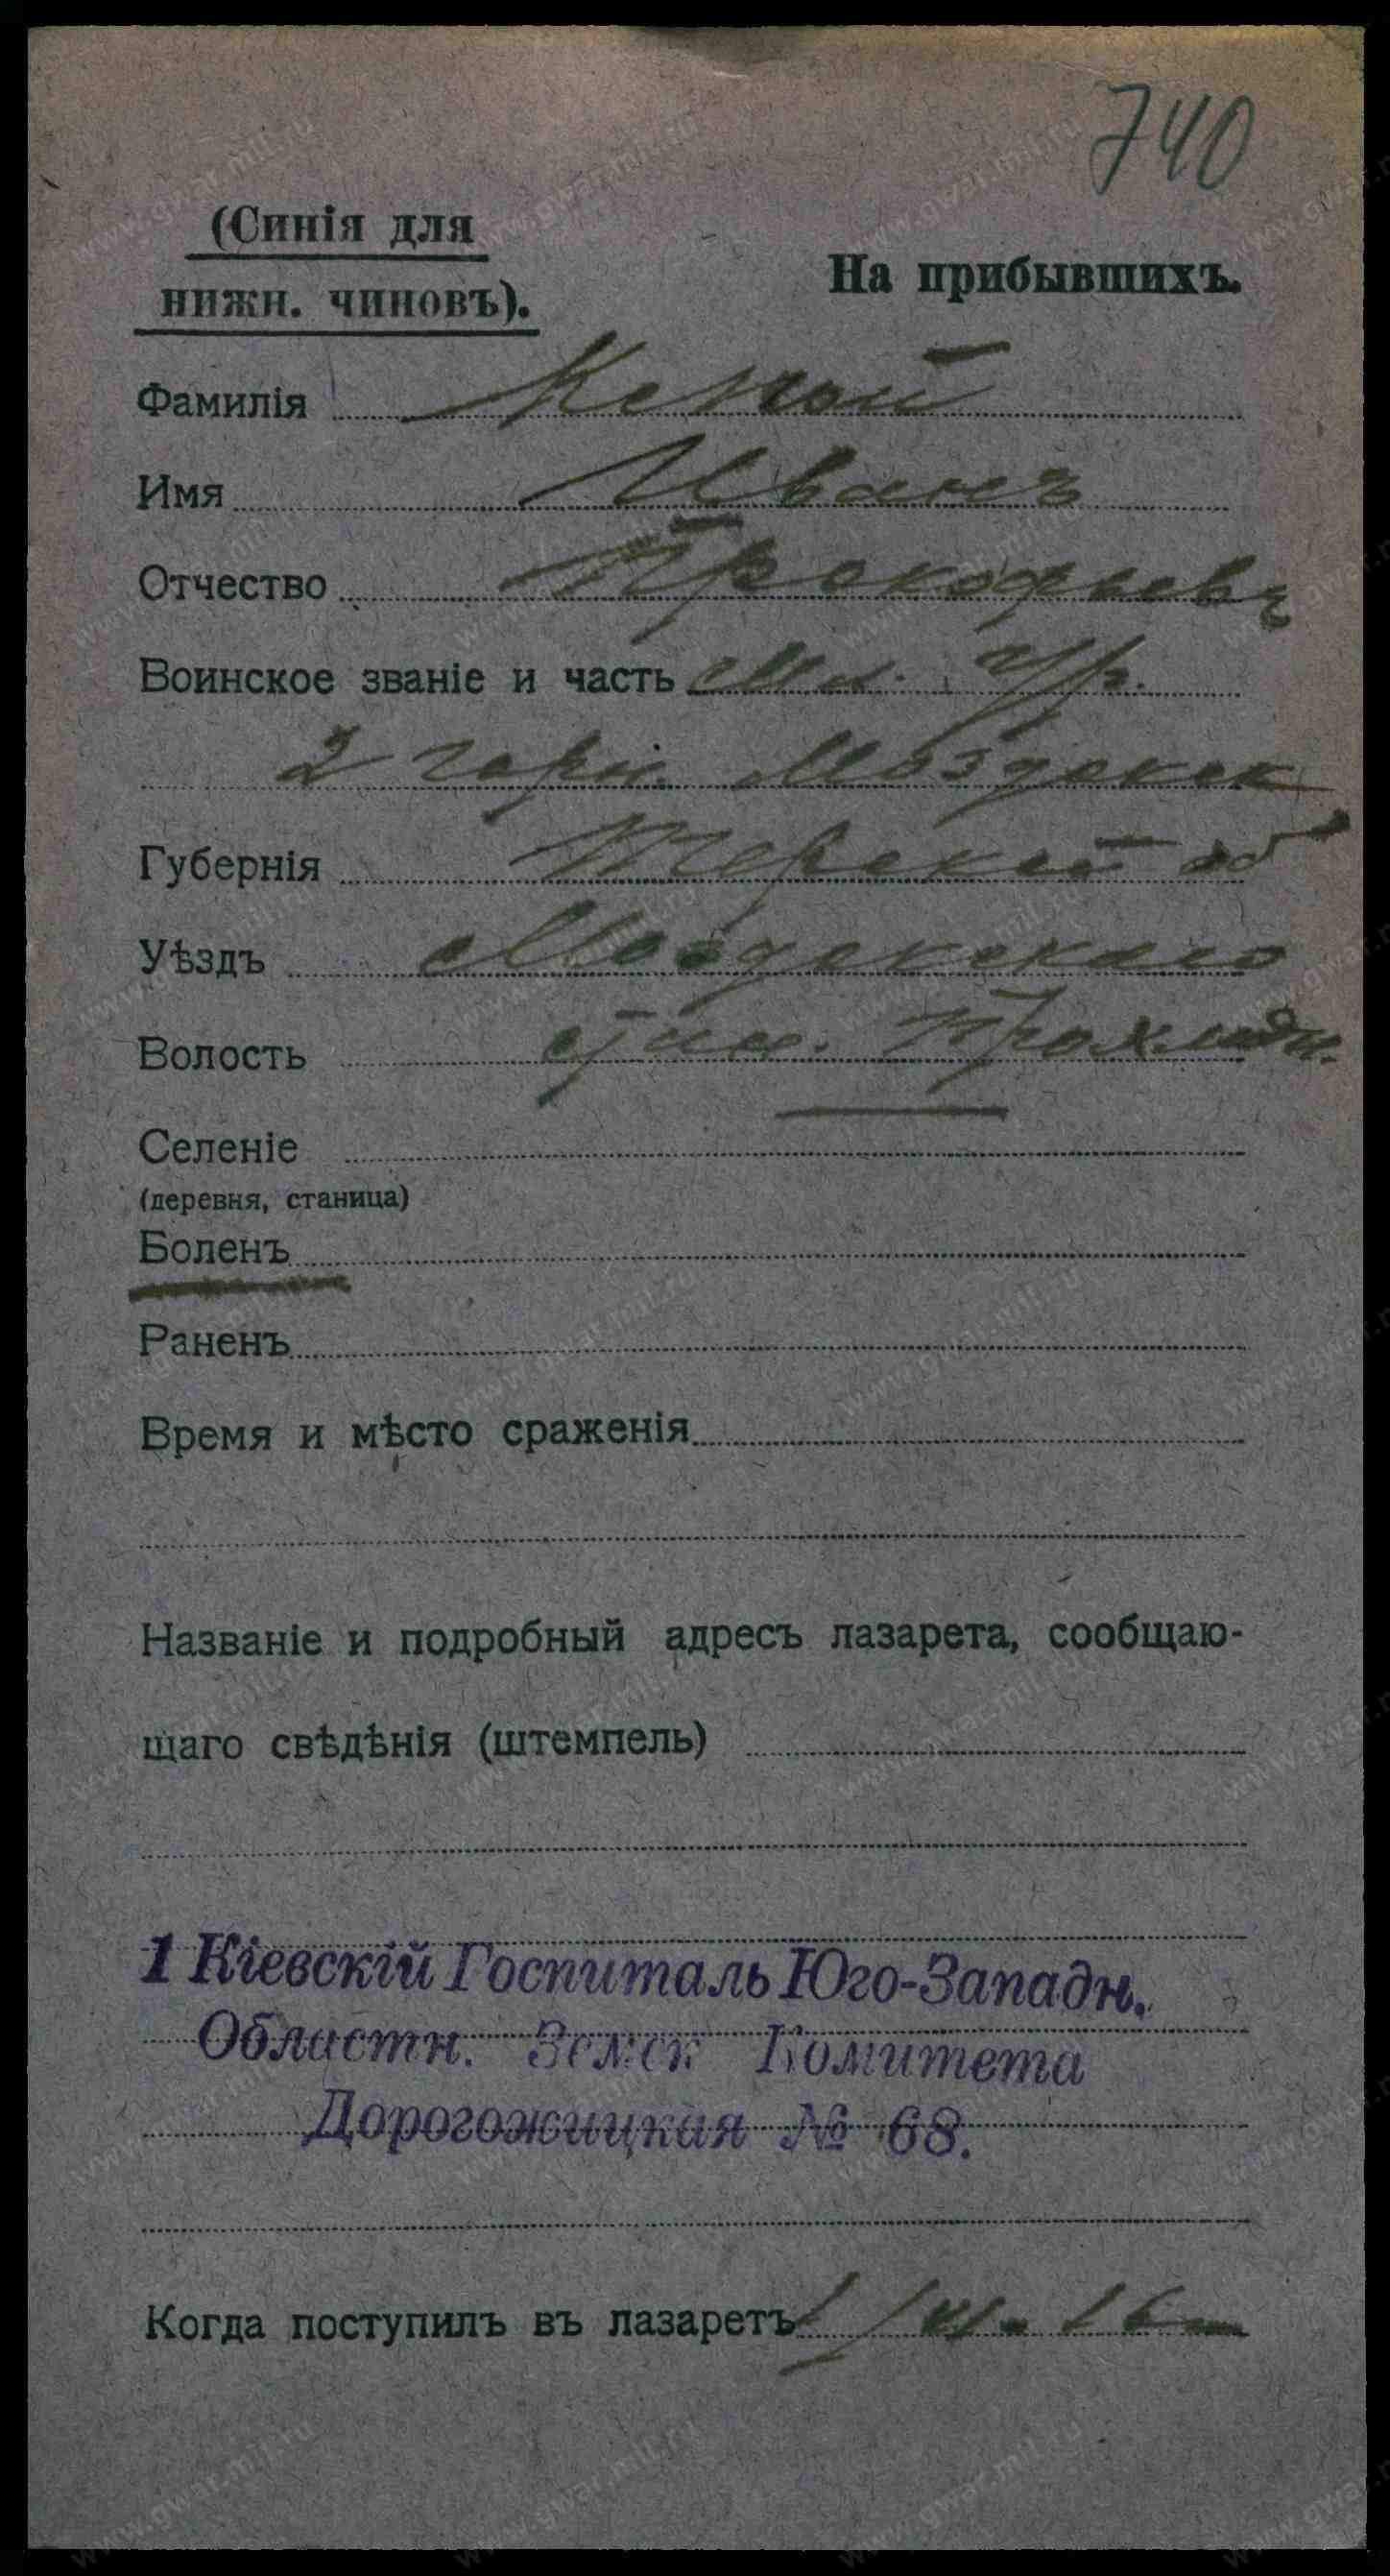 740
(Синія для
нижн. чиновъ).
На прибывшихъ.
Фамилія
Имя Иванъ
Отчество Прокофьевъ
Воинское званіе и часть Мл. Ур.
2 горн. Моздокск
Губернія Терской об
Уѣздъ Моздокскаго
Волость стан. Прохладн.
Селеніе
(деревня, станица)
Боленъ
Раненъ
Время и мѣсто сраженія
Названіе и подробный адресъ лазарета, сообщаю-
щаго свѣдѣнія (штемпель)
1 Кіевскій Госпиталь Юго-Западн.
Областн. Земск Комитета
Дорогожицкая № 68.
Когда поступилъ въ лазаретъ